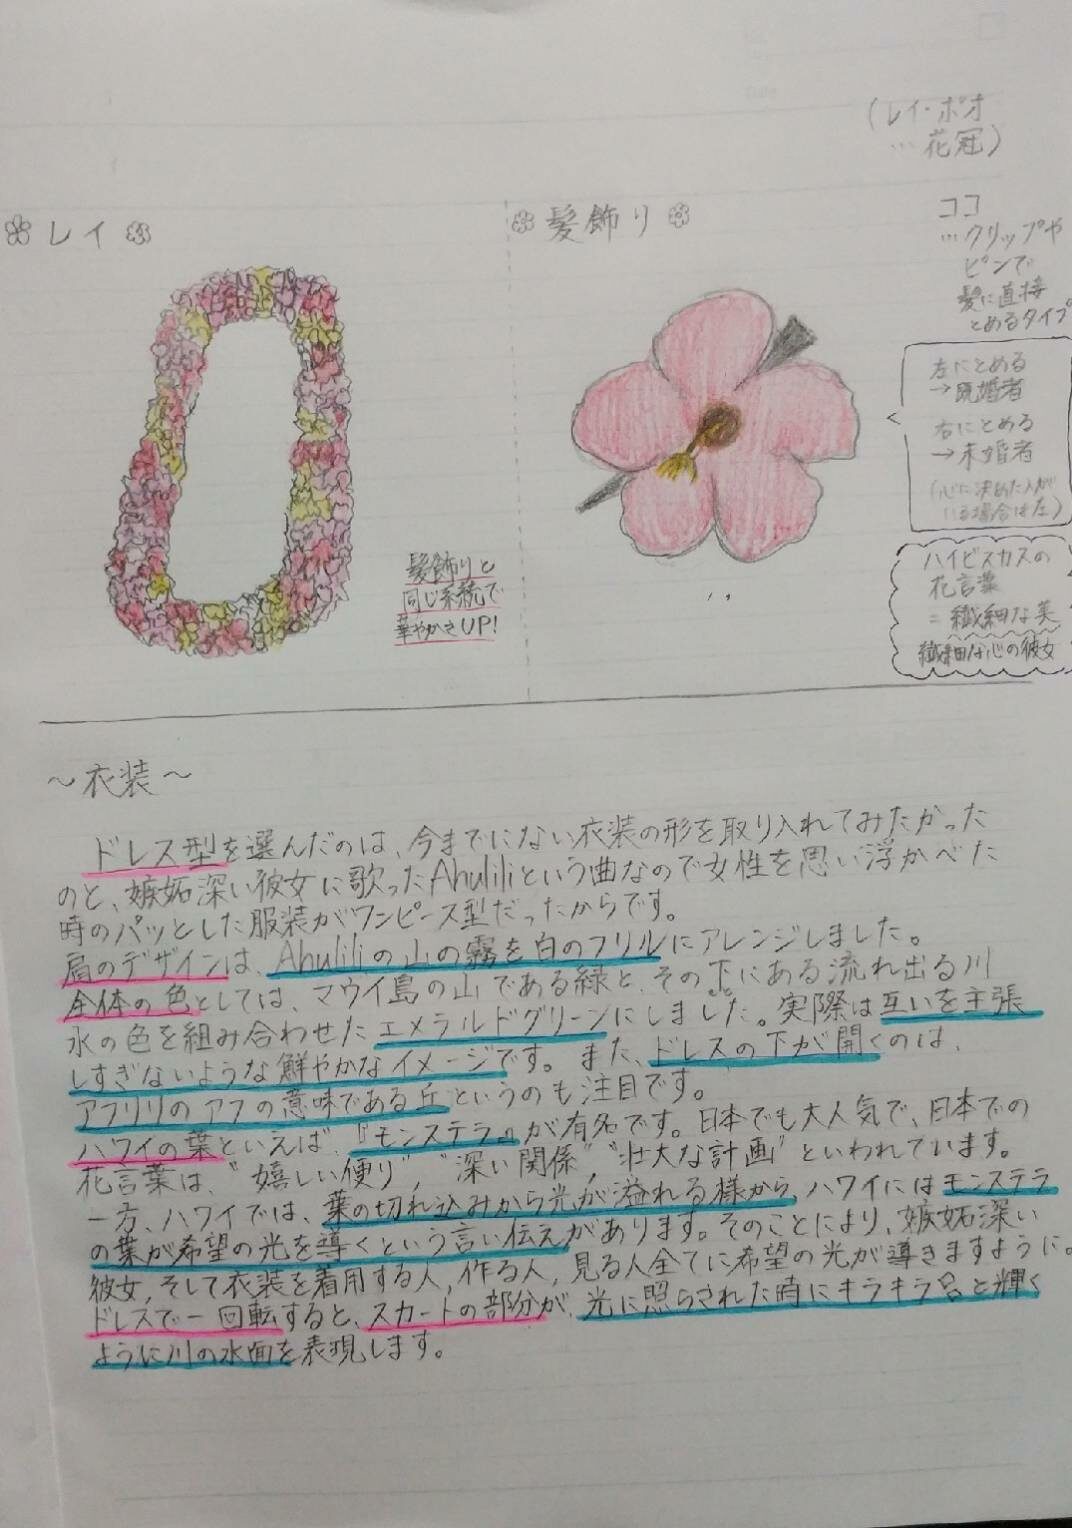 (レイ・ポオ
…花冠)
レイ
髪飾り
ココ
…クリップや
ピンで
髪に直接
とめるタイプ
左にとめる
→既婚者
右にとめる
→未婚者
(心に決めた人が
いる場合は左)
ハイビスカスの
花言葉
=繊細な美
繊細な心の彼女
髪飾りと
同じ系統で
華やかさUP!
～衣装～
ドレス型を選んだのは、今までにない衣装の形を取り入れてみたかった
のと、嫉妬深い彼女に歌ったAhuliliという曲なので女性を思い浮かべた
時のパッとした服装がワンピース型だったからです。
肩のデザインは、Ahuliliの山の霧を白のフリルにアレンジしました。
全体の色としては、マウイ島の山である緑と、その下にある流れ出る川
水の色を組み合わせたエメラルドグリーンにしました。実際は互いを主張
しすぎないような鮮やかなイメージです。また、ドレスの下が開くのは、
アフリリのアフの意味である丘というのも注目です。
ハワイの葉といえば、『モンステラ』が有名です。日本でも大人気で、日本での
花言葉は、"嬉しい便り"、"深い関係"、"壮大な計画"といわれています。
一方、ハワイでは、葉の切れ込みから光が溢れる様から、ハワイにはモンステラ
の葉が希望の光を導くという言い伝えがあります。そのことにより、嫉妬深い
彼女、そして衣装を着用する人、作る人、見る人全てに希望の光が導きますように。
ドレスで一回転すると、スカートの部分が、光に照らされた時にキラキラと輝く
ように川の水面を表現します。